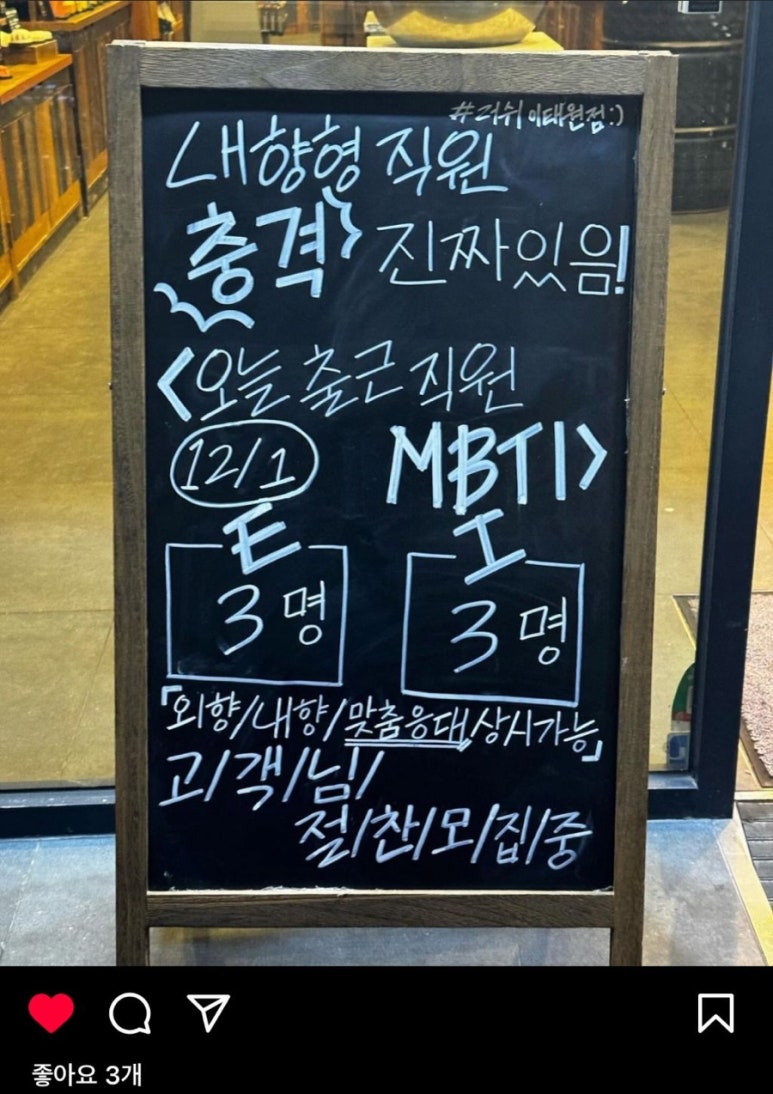 #러쉬이태원점:)
내향형 직원
충격 진짜있음!
<오늘 출근 직원
12/1 MBTI>
E I
3명 3명
「외향/내향/맞춤응대/상시가능」
고/객/님/
절/찬/모/집/중
좋아요 3개